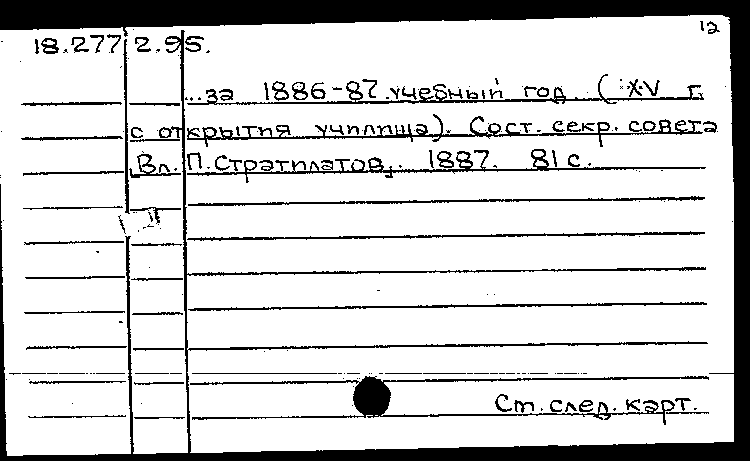 12
18.277 2.95.
...за 1886-87 учебный год (XV г.
с открытия училища). Сост. секр. совета
Вл. П. Стратилатов,. 1887. 81 с.
См. след. карт.